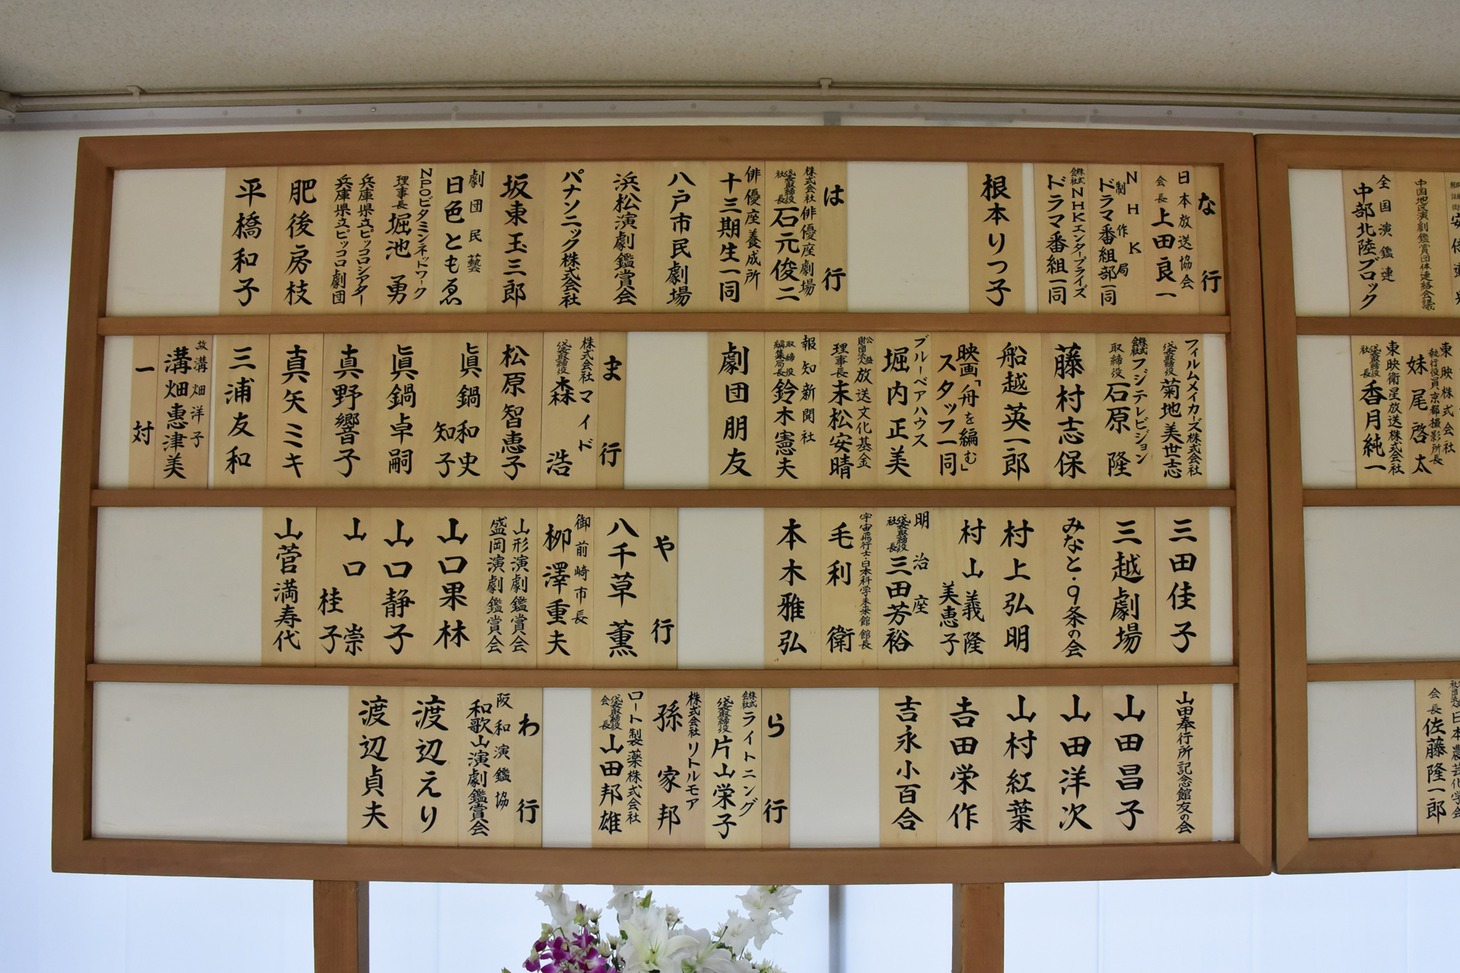 な行
日本放送協会
会長 上田良一
NHK
制作局
ドラマ番組部一同
株式会社NHKエンタープライズ
ドラマ番組一同
根本りつ子
は行
株式会社俳優座劇場
代表取締役社長 石元俊二
俳優座養成所
十三期生一同
八戸市民劇場
浜松演劇鑑賞会
パナソニック株式会社
坂東玉三郎
劇団民藝
日色ともゑ
NPOビタミンネットワーク
理事長 堀池勇
兵庫県立ピッコロシアター
兵庫県立ピッコロ劇団
肥後房枝
平橋和子
フィルムメイカーズ株式会社
代表取締役 菊地美世志
株式会社フジテレビジョン
取締役 石原隆
藤村志保
船越英一郎
映画「舟を編む」
スタッフ一同
ブルーベアハウス
堀内正美
放送文化基金
理事長 末松安晴
報知新聞社
取締役編集局長 鈴木憲夫
劇団朋友
ま行
株式会社マイド
代表取締役 森浩
松原智恵子
眞鍋和史
知子
眞鍋卓嗣
真野響子
真矢ミキ
三浦友和
故 溝畑洋子
溝畑惠津美
一対
三田佳子
三越劇場
みなと・9条の会
村上弘明
村山義隆
美恵子
明治座
代表取締役社長 三田芳裕
宇宙飛行士・日本科学未来館 館長
毛利衛
本木雅弘
や行
八千草薫
御前崎市長
栁澤重夫
山形演劇鑑賞会
盛岡演劇鑑賞会
山口果林
山口静子
山口崇
桂子
山菅満寿代
山田奉行所記念館友の会
山田昌子
山田洋次
山村紅葉
𠮷田栄作
吉永小百合
ら行
株式会社ライトニング
代表取締役 片山栄子
株式会社リトルモア
孫家邦
ロート製薬株式会社
代表取締役会長 山田邦雄
わ行
阪和演鑑協
和歌山演劇鑑賞会
渡辺えり
渡辺貞夫
中国地区演劇鑑賞団体連絡会議
全国演鑑連
中部北陸ブロック
東映株式会社
執行役員京都撮影所長
妹尾啓太
東映衛星放送株式会社
香月純一
会長 佐藤隆一郎